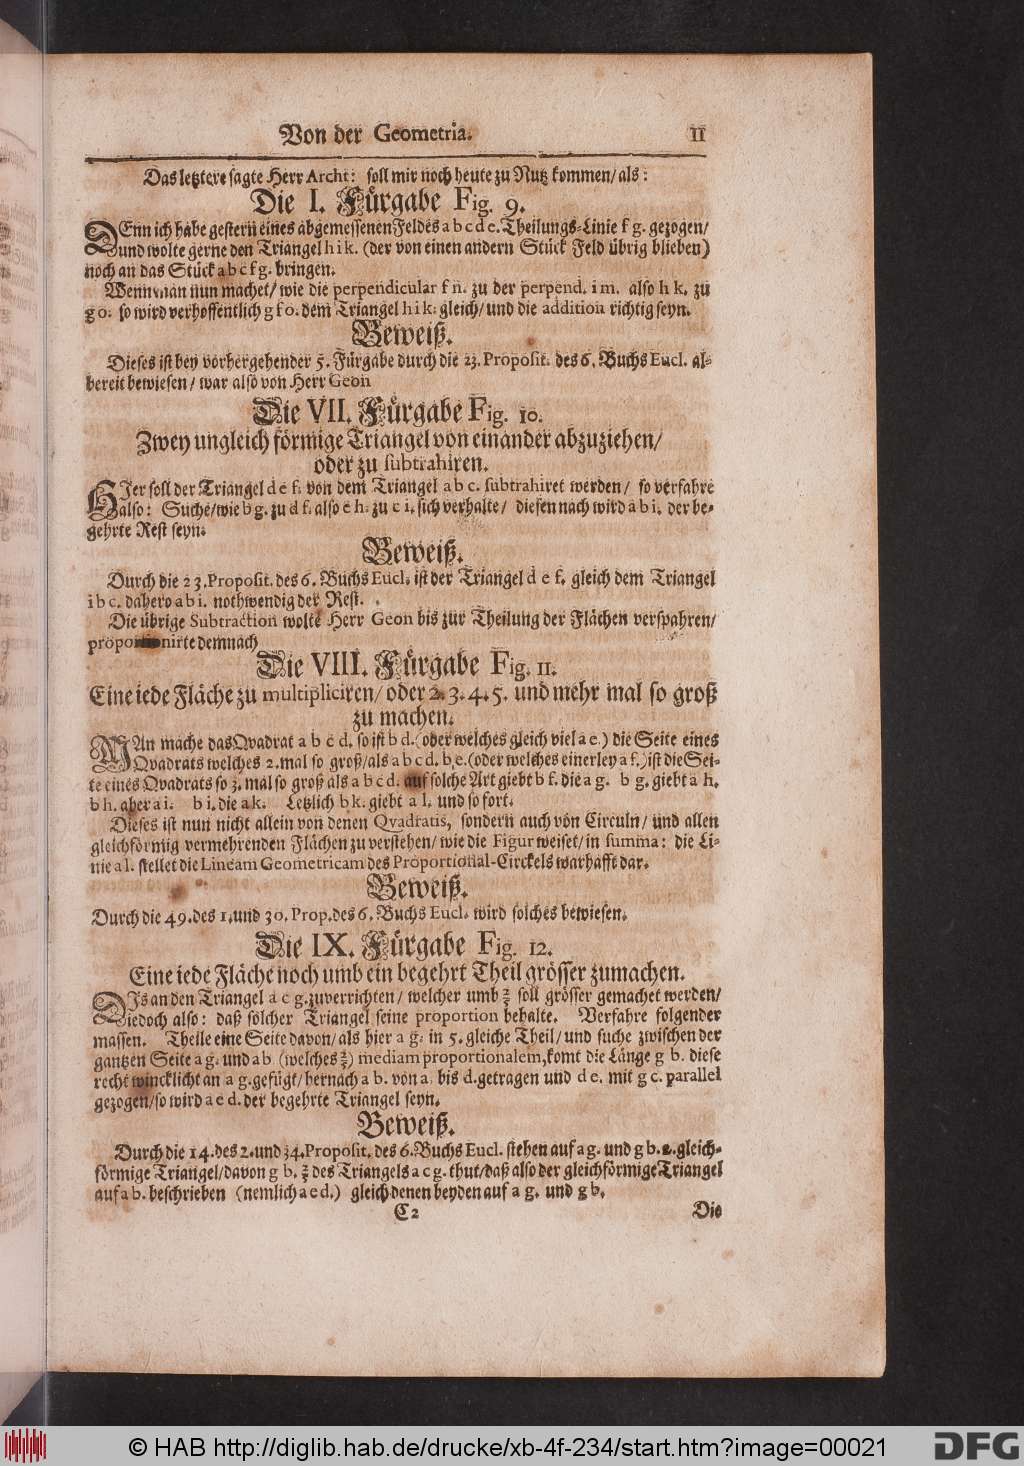 Von der Geometria. 11
Das letztere sagte Herr Archt: soll mir noch heute zu Nutz kommen/ als:
Die I. Fürgabe Fig. 9.
DEnn ich habe gestern eines abgemessenen Feldes a b c d e. Theilungs-Linie f g. gezogen/
und wolte gerne den Triangel h i k. (der von einen andern Stück Feld übrig blieben)
noch an das Stück a b c f g. bringen.
Wenn man nun machet/ wie die perpendicular f n. zu der perpend. i m. also h k. zu
g o. so wird verhoffentlich g f o. dem Triangel h i k. gleich/ und die addition richtig seyn.
Beweiß.
Dieses ist bey vorhergehender 5. Fürgabe durch die 23. Proposit. des 6. Buchs Eucl. al-
bereit bewiesen/ war also von Herr Geon
Die VII. Fürgabe Fig. 10.
Zwey ungleich förmige Triangel von einander abzuziehen/
oder zu subtrahiren.
HIer soll der Triangel d e f. von dem Triangel a b c. subtrahiret werden/ so verfahre
also: Suche/ wie b g. zu d f. also e h. zu c i. sich verhalte/ diesen nach wird a b i. der be-
gehrte Rest seyn.
Beweiß.
Durch die 23. Proposit. des 6. Buchs Eucl. ist der Triangel d e f. gleich dem Triangel
i b c. dahero a b i. nothwendig der Rest.
Die übrige Subtraction wolte Herr Geon bis zur Theilung der Flächen verspahren/
proportionirte demnach
Die VIII. Fürgabe Fig. 11.
Eine iede Fläche zu multipliciren/ oder 2. 3. 4. 5. und mehr mal so groß
zu machen.
MAn mache das Qvadrat a b c d. so ist b d. (oder welches gleich viel a e.) die Seite eines
Qvadrats welches 2. mal so groß/ als a b c d. b, e. (oder welches einerley a f.) ist die Sei-
te eines Qvadrats so 3. mal so groß als a b c d. auf solche Art giebt b f. die a g. b g. giebt a h.
b h. aber a i. b i. die a k. Letzlich b k. giebt a l. und so fort.
Dieses ist nun nicht allein von denen Qvadratis, sondern auch von Circuln/ und allen
gleichförmig vermehrenden Flächen zu verstehen/ wie die Figur weiset/ in summa: die Li-
nie a l. stellet die Lineam Geometricam des Proportional-Circkels warhafft dar.
Beweiß.
Durch die 49. des 1. und 30. Prop. des 6. Buchs Eucl. wird solches bewiesen.
Die IX. Fürgabe Fig. 12.
Eine iede Fläche noch umb ein begehrt Theil grösser zumachen.
DIs an den Triangel a c g. zuverrichten/ welcher umb ⅔ soll grösser gemachet werden/
iedoch also: daß solcher Triangel seine proportion behalte. Verfahre folgender
massen. Theile eine Seite davon/ als hier a g. in 5. gleiche Theil/ und suche zwischen der
gantzen Seite a g. und a b (welches ⅔) mediam proportionalem, komt die Länge g b. diese
recht wincklicht an a g. gefügt/ hernach a b. von a. bis d. getragen und d e. mit g c. parallel
gezogen/ so wird a e d. der begehrte Triangel seyn.
Beweiß.
Durch die 14. des 2. und 34. Proposit. des 6. Buchs Eucl. stehen auf a g. und g b. 2. gleich-
förmige Triangel/ davon g b. ⅔ des Triangels a c g. thut/ daß also der gleichförmige Triangel
auf a b. beschrieben (nemlich a e d.) gleich denen beyden auf a g. und g b.
C 2 Die
© HAB http://diglib.hab.de/drucke/xb-4f-234/start.htm?image=00021
DFG